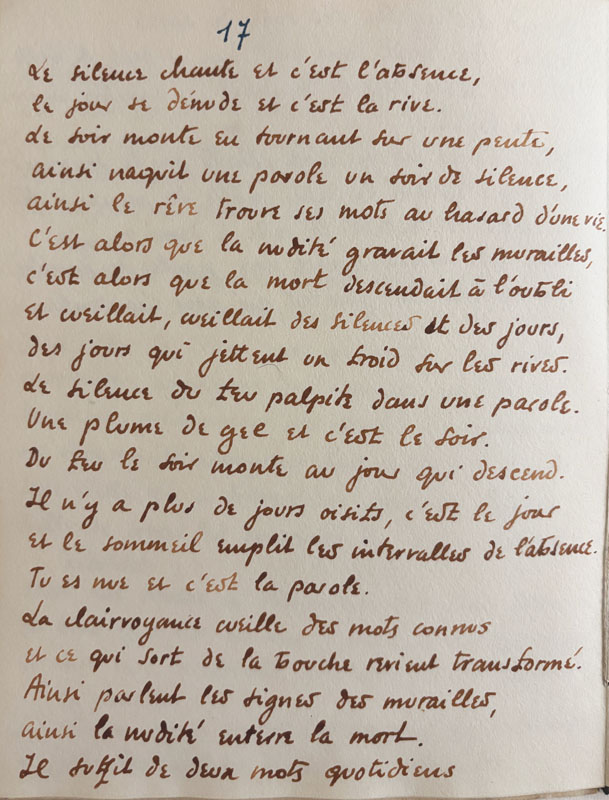 17
Le silence chante et c'est l'absence,
le jour se dénude et c'est la rive.
Le soir monte en tournant sur une pente,
ainsi naquit une parole un soir de silence,
ainsi le rêve trouve ses mots au hasard d'une vie.
C'est alors que la nudité gravait les murailles,
c'est alors que la mort descendait à l'oubli
et cueillait, cueillait des silences et des jours,
des jours qui jettent un froid sur les rives.
Le silence du feu palpite dans une parole.
Une plume de gel et c'est le soir.
Du feu le soir monte au jour qui descend.
Il n'y a plus de jours oisifs, c'est le jour
et le sommeil emplit les intervalles de l'absence.
Tu es nue et c'est la parole.
La clairvoyance cueille des mots connus
et ce qui sort de la bouche revient transformé.
Ainsi parlent les signes des murailles,
ainsi la nudité enterre la mort.
Il suffit de deux mots quotidiens